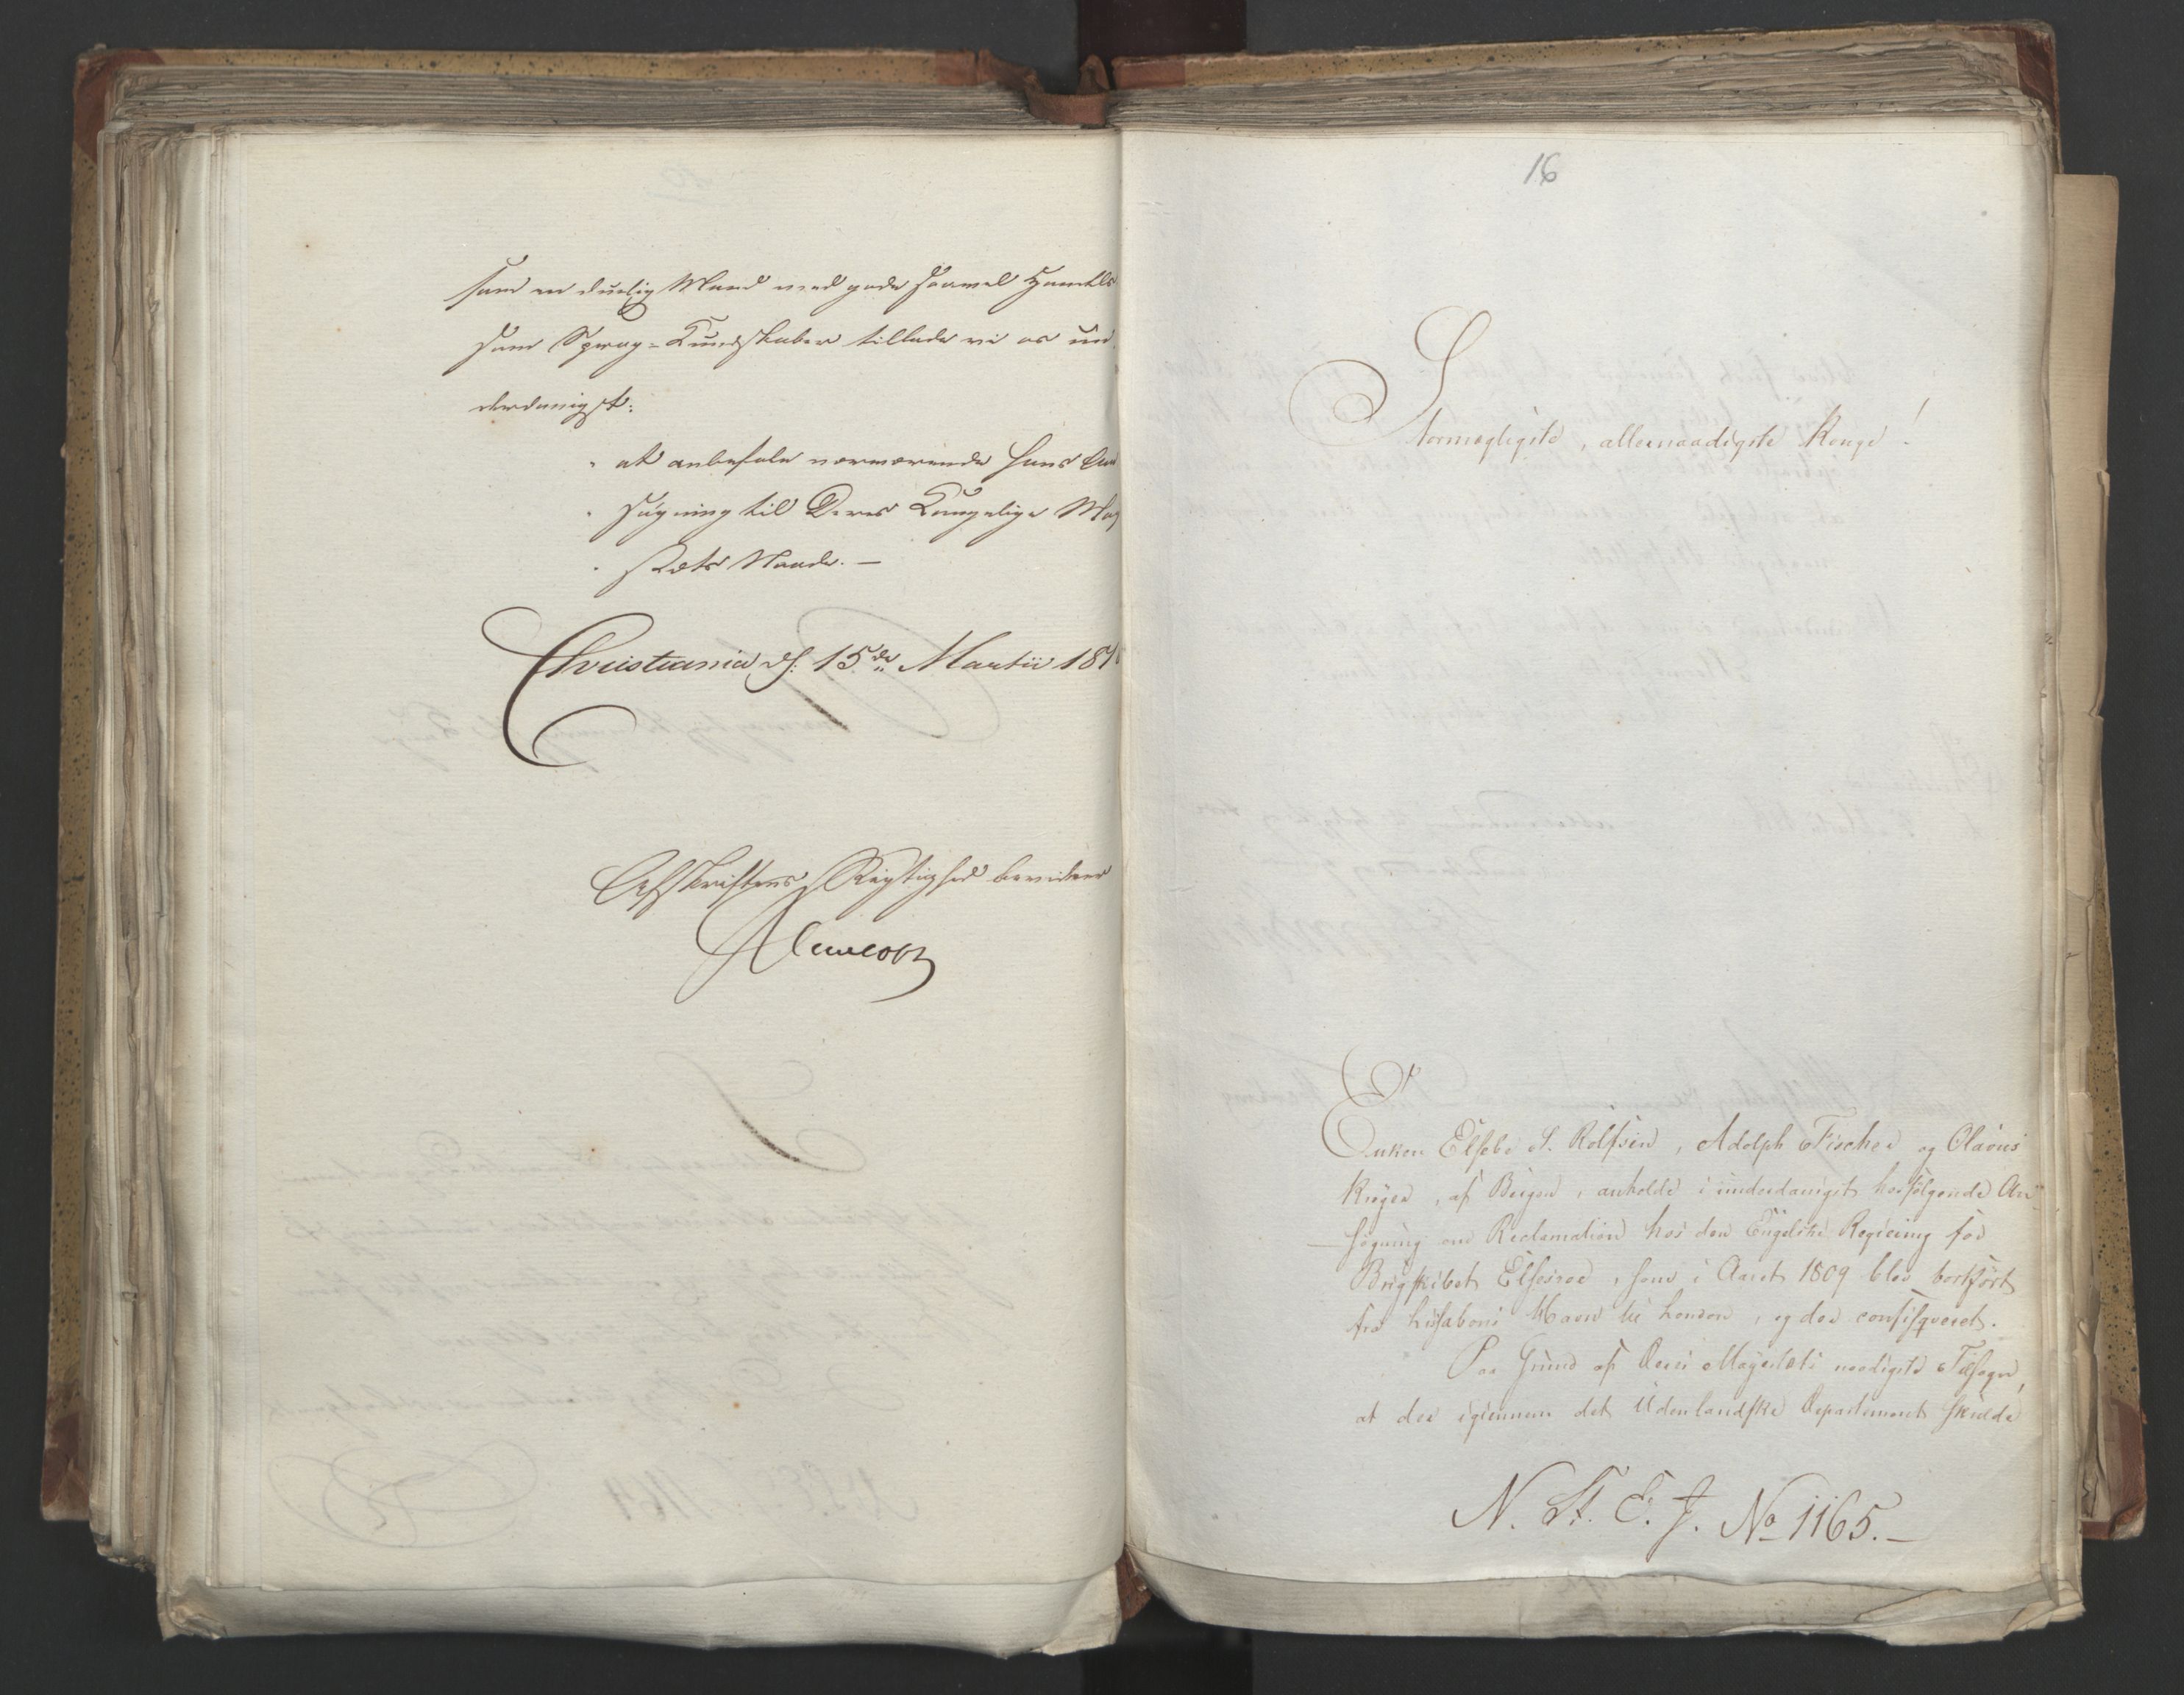 som en duelig Mand med gode saavel Handels
som Sprog-Kundskaber tillade vi os un
derdanigst:
" at anbefale nærværende hans An
" søgning til Deres Kongelige Maj
" stæts Naade. —
Christiania d: 15de Martii 181
Afskriftens Rigtighed bevidner
16
Stormægtigste, allernaadigste Konge!
Enken Elsebe S. Rolfsen, Adolph Fischer og Olavus
Krøger, af Bergen, anholde i underdanigst hosfølgende An-
søgning om Reclamation hos den Engelske Regiering for
Brigskibet Elseroe, som i Aaret 1809 blev bortført
fra Lissabons Havn til London, og der confisqveret.
Paa Grund af Deres Majestæts naadigste Tilsagn,
at der igiennem det Udenlandske Departement skulde
N. St. E. J. No 1165.—